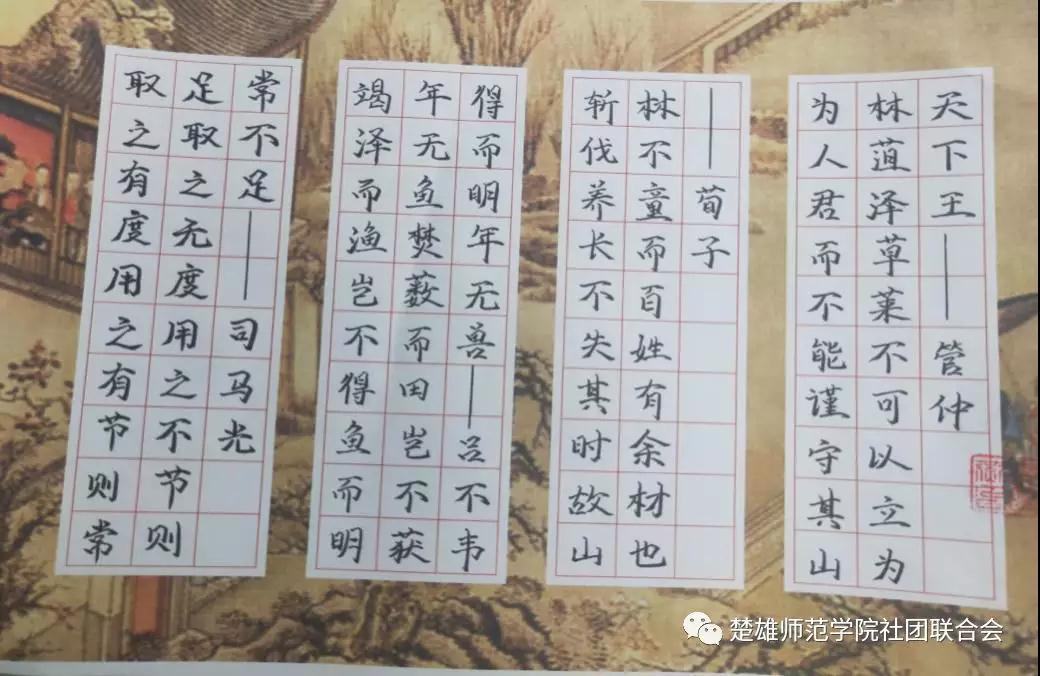 取之有度用之有节则常
足取之无度用之不节则
常不足——司马光
竭泽而渔岂不得鱼而明
年无鱼焚薮而田岂不获
得而明年无兽——吕不韦
斩伐养长不失其时故山
林不童而百姓有余材也
——荀子
为人君而不能谨守其山
林菹泽草莱不可以立为
天下王——管仲
楚雄师范学院社团联合会